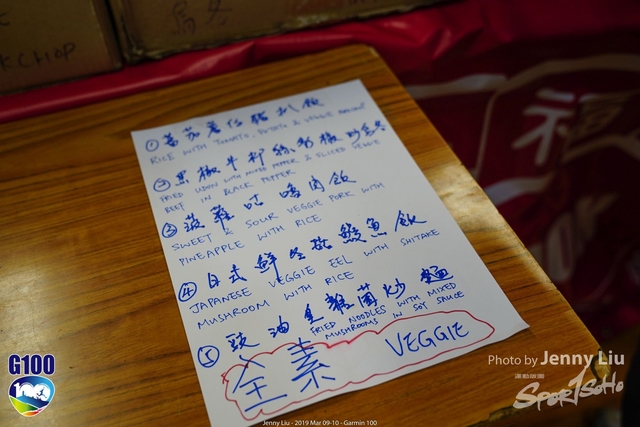 KCHOP
福
① 蕃茄薯仔豬扒飯
RICE WITH TOMATO, POTATO & VEGGIE
② 黑椒牛柳絲彩椒炒烏冬
FRIED UDON WITH MIXED PEPPER & SLICED VEGGIE
BEEF IN BLACK PEPPER
③ 菠蘿咕嚕肉飯
SWEET & SOUR VEGGIE PORK WITH
PINEAPPLE WITH RICE
④ 日式鮮冬菇鰻魚飯
JAPANESE VEGGIE EEL WITH SHITAKE
MUSHROOM WITH RICE
⑤ 豉油皇雜菌炒麵
FRIED NOODLES WITH MIXED
MUSHROOMS IN SOY SAUCE
全素 VEGGIE
G100
100
Photo by Jenny Liu
運動版圖
SPORTSOHO
Jenny Liu - 2019 Mar 09-10 - Garmin 100